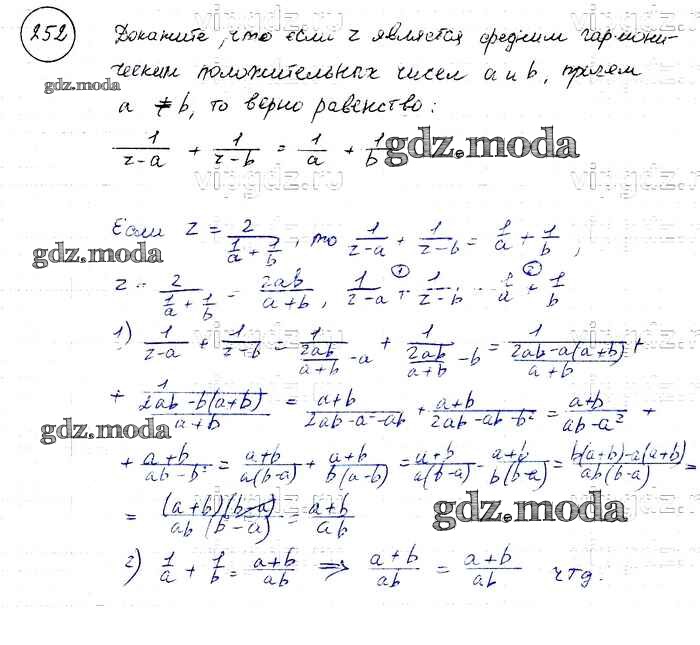 252
Докажите, что если z является средним гармони-
ческим положительных чисел a и b, причём
gdz.moda
a ≠ b, то верно равенство:
1/(z-a) + 1/(z-b) = 1/a + 1/b
gdz.moda
vipgdz.ru vipgdz.ru
Если z = 2/(1/a + 1/b), то 1/(z-a) + 1/(z-b) = 1/a + 1/b,
gdz.moda
z = 2/(1/a + 1/b) = 2ab/(a+b), 1/(z-a) + ① 1/(z-b) = 1/a + ② 1/b
1) 1/(z-a) + 1/(z-b) = 1/(2ab/(a+b) - a) + 1/(2ab/(a+b) - b) = 1/((2ab-a(a+b))/(a+b)) +
+ 1/((2ab-b(a+b))/(a+b)) = (a+b)/(2ab-a²-ab) + (a+b)/(2ab-ab-b²) = (a+b)/(ab-a²) +
gdz.moda
+ (a+b)/(ab-b²) = (a+b)/(a(b-a)) + (a+b)/(b(a-b)) = (a+b)/(a(b-a)) - (a+b)/(b(b-a)) = (b(a+b)-a(a+b))/(ab(b-a)) =
vipgdz.ru vipgdz.ru
= (a+b)(b-a)/(ab(b-a)) = (a+b)/(ab)
gdz.moda
2) 1/a + 1/b = (a+b)/(ab) ⇒ (a+b)/(ab) = (a+b)/(ab) чтд.